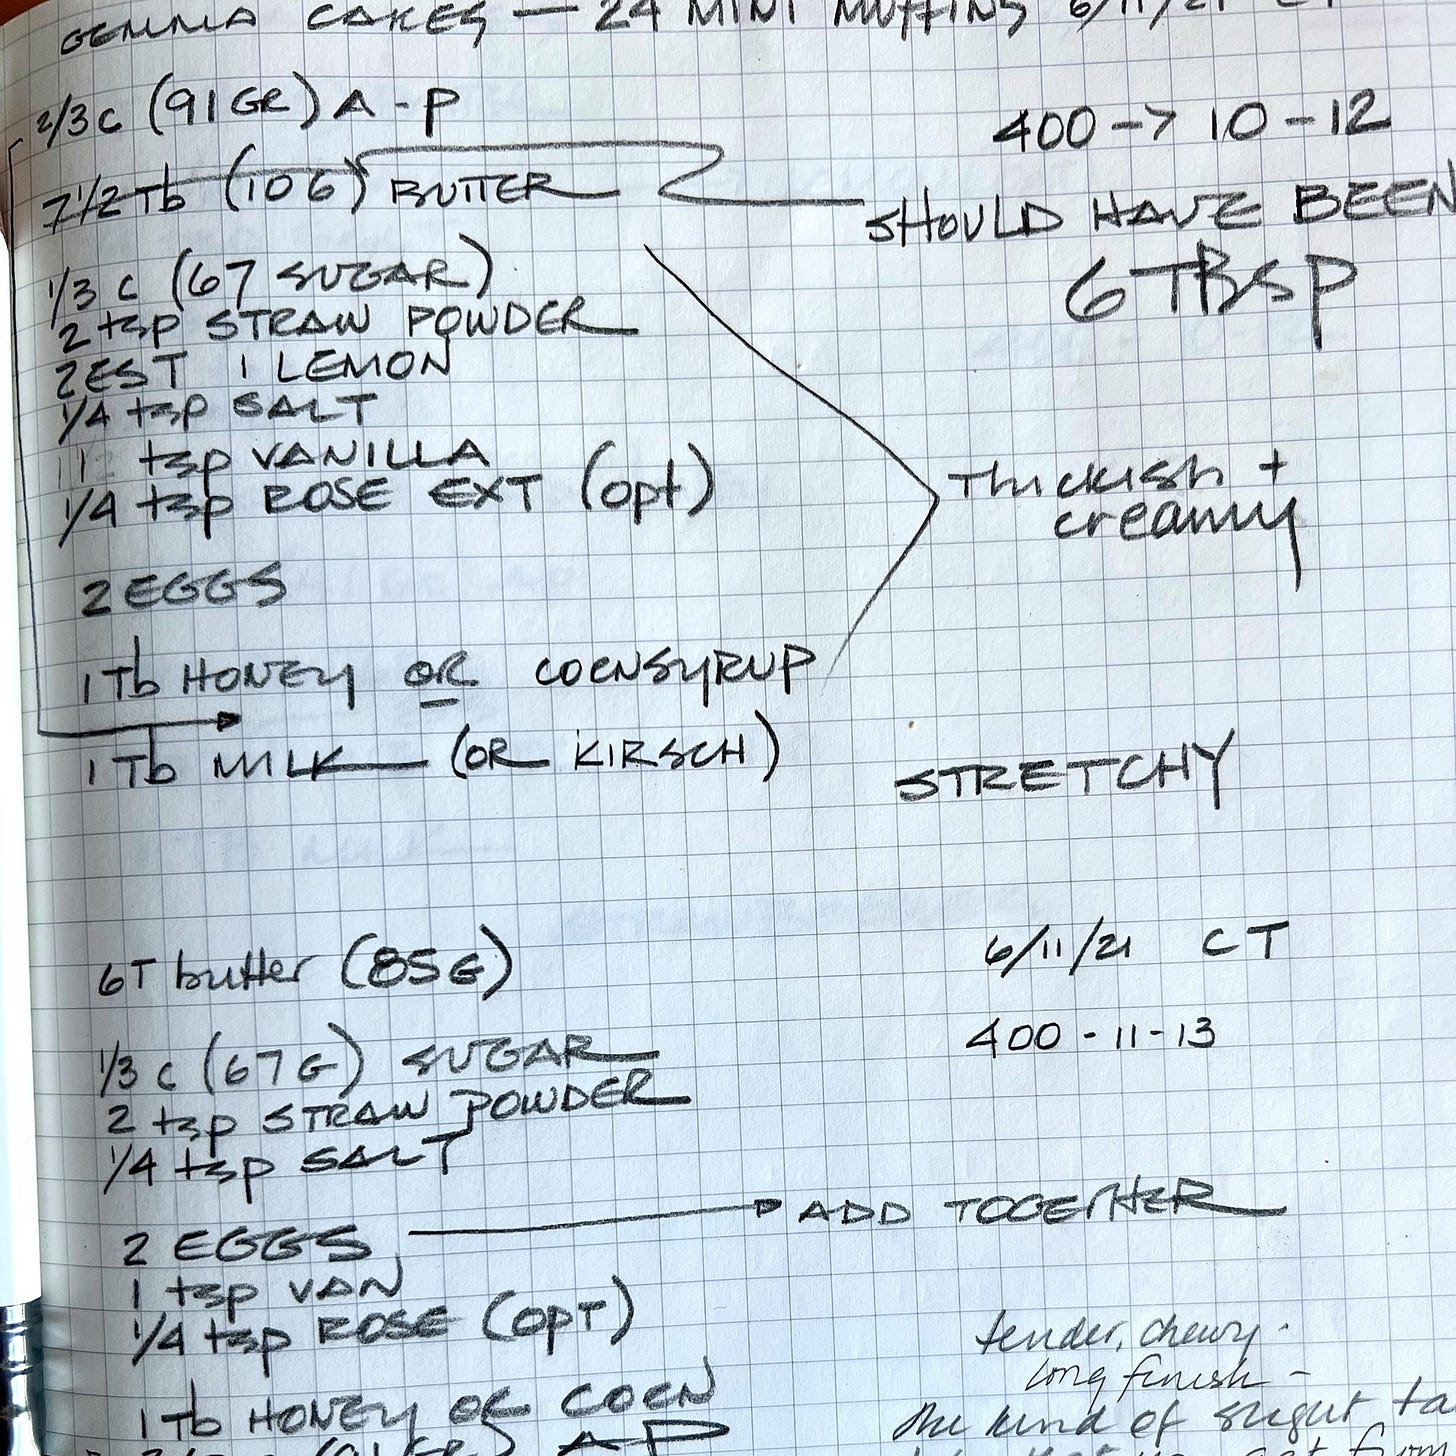 GEMMA CAKES — 24 MINI MUFFINS 6/11/21 CT
2/3 C (91 GR) A-P
400 -> 10-12
7 1/2 Tb (106) BUTTER
SHOULD HAVE BEEN
6 TBSP
1/3 C (67 SUGAR)
2 tsp STRAW POWDER
ZEST 1 LEMON
1/4 tsp SALT
1 tsp VANILLA
1/4 tsp ROSE EXT (opt)
Thickish +
creamy
2 EGGS
1 Tb HONEY OR CORNSYRUP
1 Tb MILK (OR KIRSCH)
STRETCHY
6T butter (85G)
6/11/21 CT
1/3 C (67G) SUGAR
400 - 11-13
2 tsp STRAW POWDER
1/4 tsp SALT
2 EGGS
ADD TOGETHER
1 tsp VAN
1/4 tsp ROSE (OPT)
1 Tb HONEY OR CORN
(91 GR) AP
tender, chewy -
long finish -
the kind of slight